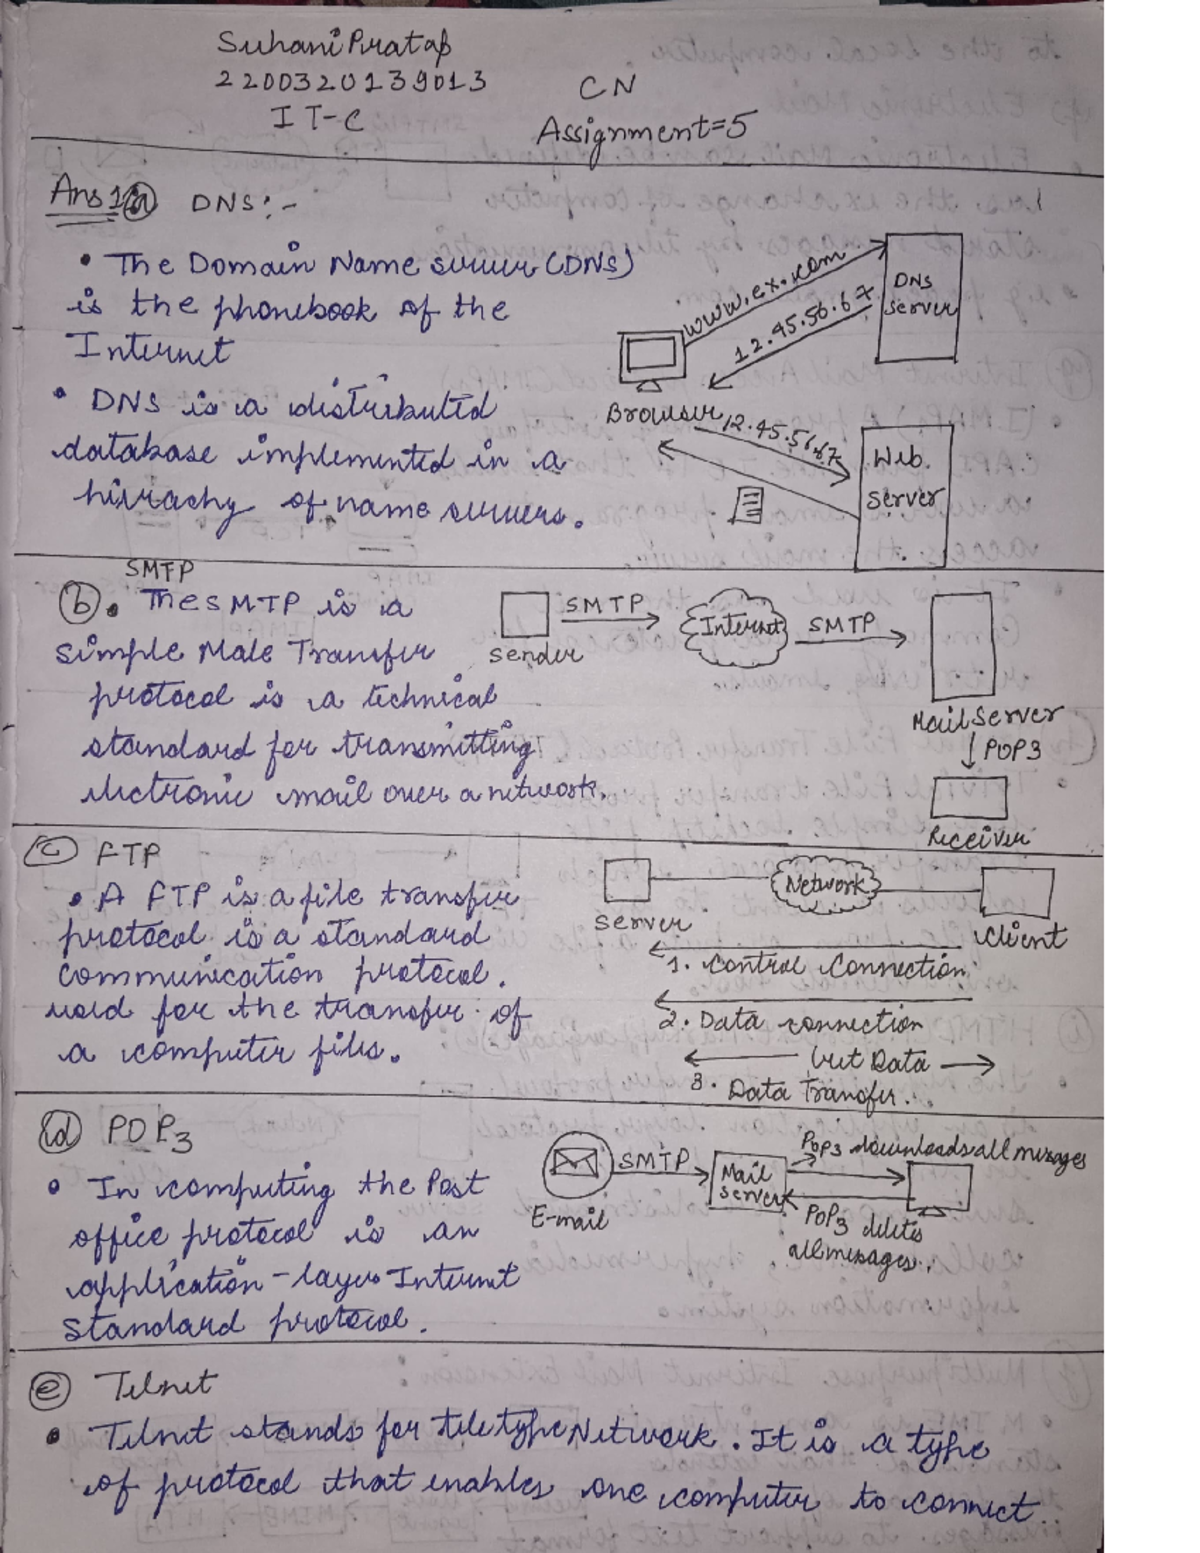 Suhani Pratap
2200320139013
IT-C
CN
Assignment=5
Ans 1 (a) DNS:-
• The Domain Name server (DNS)
is the phonebook of the
Internet
• DNS is a distributed
database implemented in a
hirachy of name servers.
www.ex.com
12.45.56.67
DNS
Server
Browser
12.45.56.67
Web
Server
SMTP
(b) • The SMTP is a
simple Male Transfer
protocol is a technical
standard for transmitting
electronic mail over a network.
Sender
SMTP
Internet
SMTP
Mail Server
POP3
Receiver
(c) FTP
• A FTP is a file transfer
protocol is a standard
communication protocol.
used for the transfer of
a computer files.
Server
Network
Client
1. Control Connection
2. Data connection
Data
3. Data Transfer.
(d) POP3
• In computing the Post
office protocol is an
application-layer Internet
standard protocol.
E-mail
SMTP
Mail
Server
POP3 downloads all messages
POP3 deletes
all messages.
(e) Telnet
• Telnet stands for teletype Network. It is a type
of protocol that enables one computer to connect